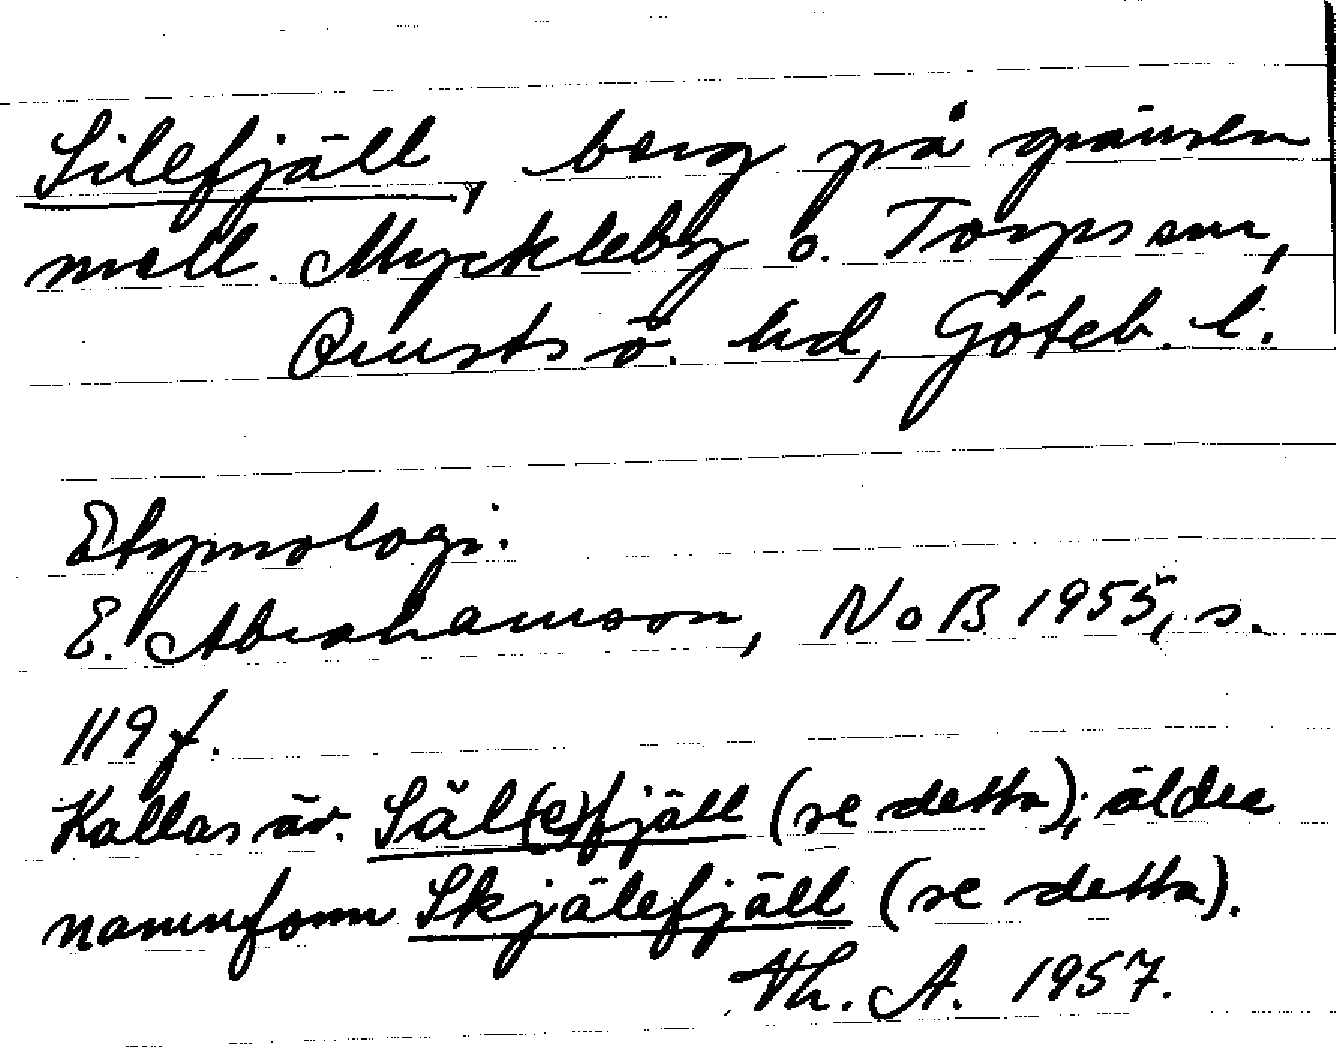 Silefjäll, berg på gränsen
mell. Myckleby o. Torps snr,
Orusts ö. hd, Göteb. l.
Etymologi.
E. Abrahamson, NoB 1955, s.
119 f.
Kallas äv. Säl(e)fjäll (se detta); äldre
namnform Skjälefjäll (se detta).
Th. A. 1957.